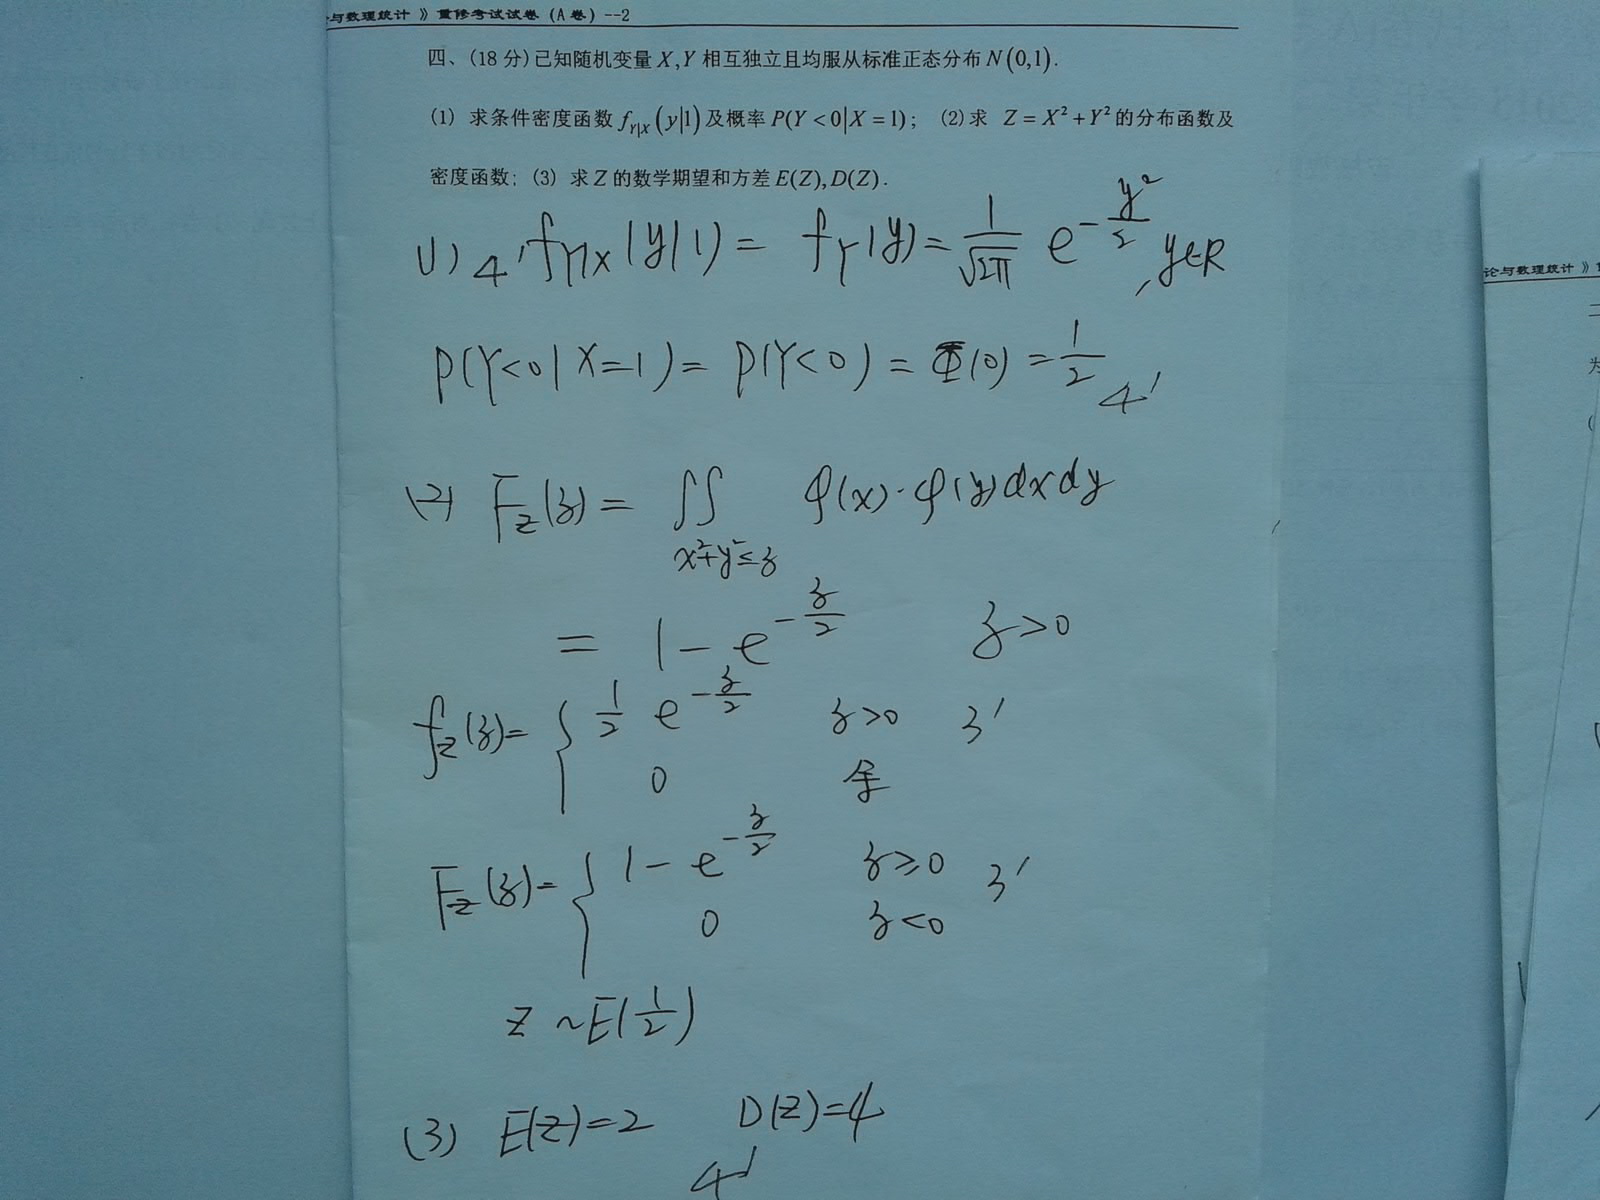 与数理统计 》重修考试试卷 (A 卷) --2
四、(18 分) 已知随机变量 X,Y 相互独立且均服从标准正态分布 N(0,1).
(1) 求条件密度函数 f_{Y|X}(y|1) 及概率 P(Y<0|X=1); (2) 求 Z=X²+Y² 的分布函数及
密度函数; (3) 求 Z 的数学期望和方差 E(Z),D(Z).
(1) 4' f_{Y|X}(y|1) = f_Y(y) = \frac{1}{\sqrt{2π}} e^{-\frac{y²}{2}}, y∈R
P(Y<0|X=1) = P(Y<0) = Φ(0) = \frac{1}{2} 4'
(2) F_Z(z) = ∬_{x²+y²≤z} φ(x)·φ(y)dxdy
= 1 - e^{-\frac{z}{2}} z>0
f_Z(z) = { \frac{1}{2} e^{-\frac{z}{2}} z>0 3'
0 余
F_Z(z) = { 1 - e^{-\frac{z}{2}} z≥0 3'
0 z<0
Z ~ E(\frac{1}{2})
(3) E(Z)=2 D(Z)=4
4'
论与数理统计 》
二
为
(